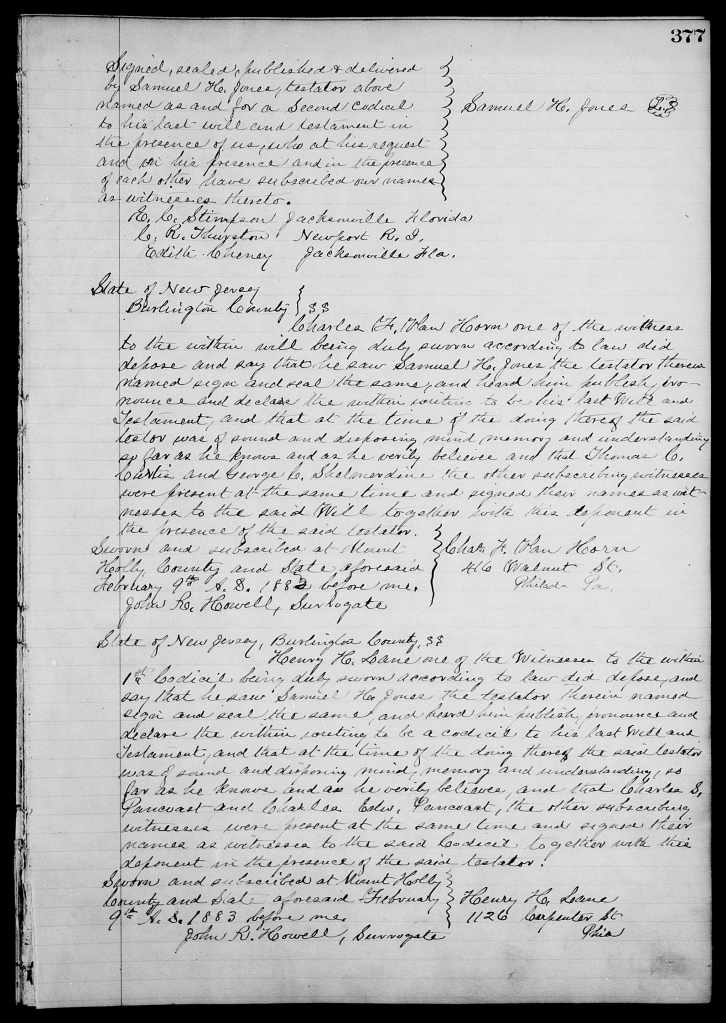 377
Signed, sealed, published & delivered
by Samuel H. Jones, testator above
named as and for a Second codicil
to his last will and testament in
the presence of us, who at his request
and in his presence and in the presence
of each other have subscribed our names
as witnesses thereto.
Samuel H. Jones L.S
E. C. Stimpson Jacksonville Florida
C. R. Thurston Newport R. I.
Edith Cheney Jacksonville Fla.
State of New Jersey
Burlington County } SS
Charles F. Van Horn one of the witness
to the within will being duly sworn according to law did
depose and say that he saw Samuel H. Jones the testator therein
named sign and seal the same, and heard him publish, pro-
nounce and declare the within writing to be his last Will and
Testament, and that at the time of the doing thereof the said
testor was of sound and disposing mind memory and understanding
so far as he knows and as he verily believes and that Thomas C.
Curtis and George C. Shelmerdine the other subscribing witnesses
were present at the same time and signed their names as wit-
nesses to the said Will together with this deponent in
the presence of the said testator.
Sworn and subscribed at Mount
Holly County and State aforesaid
February 9th A. D. 1883 before me.
John R. Howell, Surrogate
Chas. F. Van Horn
416 Walnut St.
Philad- Pa.
State of New Jersey, Burlington County, SS
Henry H. Lane one of the Witnesses to the within
1st Codicil being duly sworn according to law did depose and
say that he saw Samuel H. Jones the testator therein named
sign and seal the same, and heard him publish, pronounce and
declare the within writing to be a codicil to his last Will and
Testament, and that at the time of the doing thereof the said testator
was of sound and disposing mind, memory and understanding, so
far as he knows and as he verily believes, and that Charles S.
Pancoast and Charles Edw. Pancoast, the other subscribing
witnesses were present at the same time and signed their
names as witnesses to the said Codicil together with this
deponent in the presence of the said testator.
Sworn and subscribed at Mount Holly
County and State aforesaid February
9th A. D. 1883 before me.
John R. Howell, Surrogate
Henry H. Lane
1126 Carpenter St.
Phia